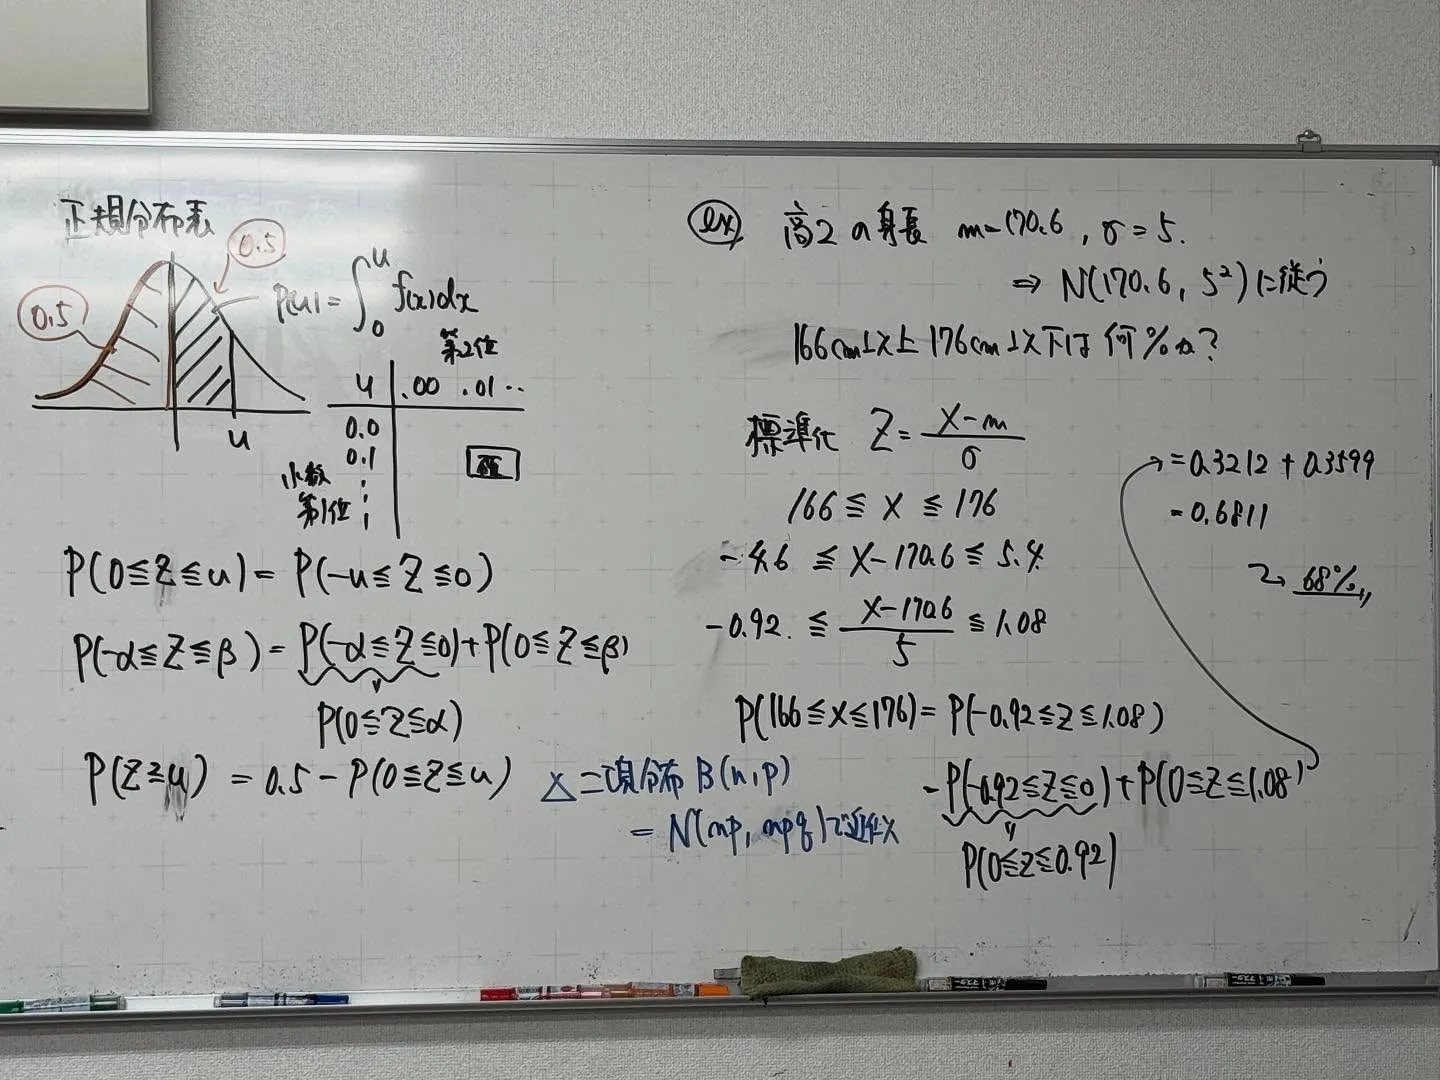 正規分布表
0.5
0.5
P(u) = ∫₀ᵘ f(x)dx
u
第2位
u .00 .01 ‥
0.0
0.1
小数
第1位
P(0≦Z≦u) = P(-u≦Z≦0)
P(-α≦Z≦β) = P(-α≦Z≦0)+P(0≦Z≦β)
P(0≦Z≦α)
P(Z≧u) = 0.5 - P(0≦Z≦u)
△ 二項分布 B(n,p)
= N(np, npq)で近似
ex 高2の身長 m=170.6, σ=5.
⇒ N(170.6, 5²)に従う
166cm以上176cm以下は何%か?
標準化 Z = (X-m)/σ
166 ≦ X ≦ 176
-4.6 ≦ X-170.6 ≦ 5.4
-0.92. ≦ (X-170.6)/5 ≦ 1.08
P(166≦X≦176) = P(-0.92≦Z≦1.08)
= P(-0.92≦Z≦0)+P(0≦Z≦1.08)
P(0≦Z≦0.92)
= 0.3212 + 0.3599
= 0.6811
68%